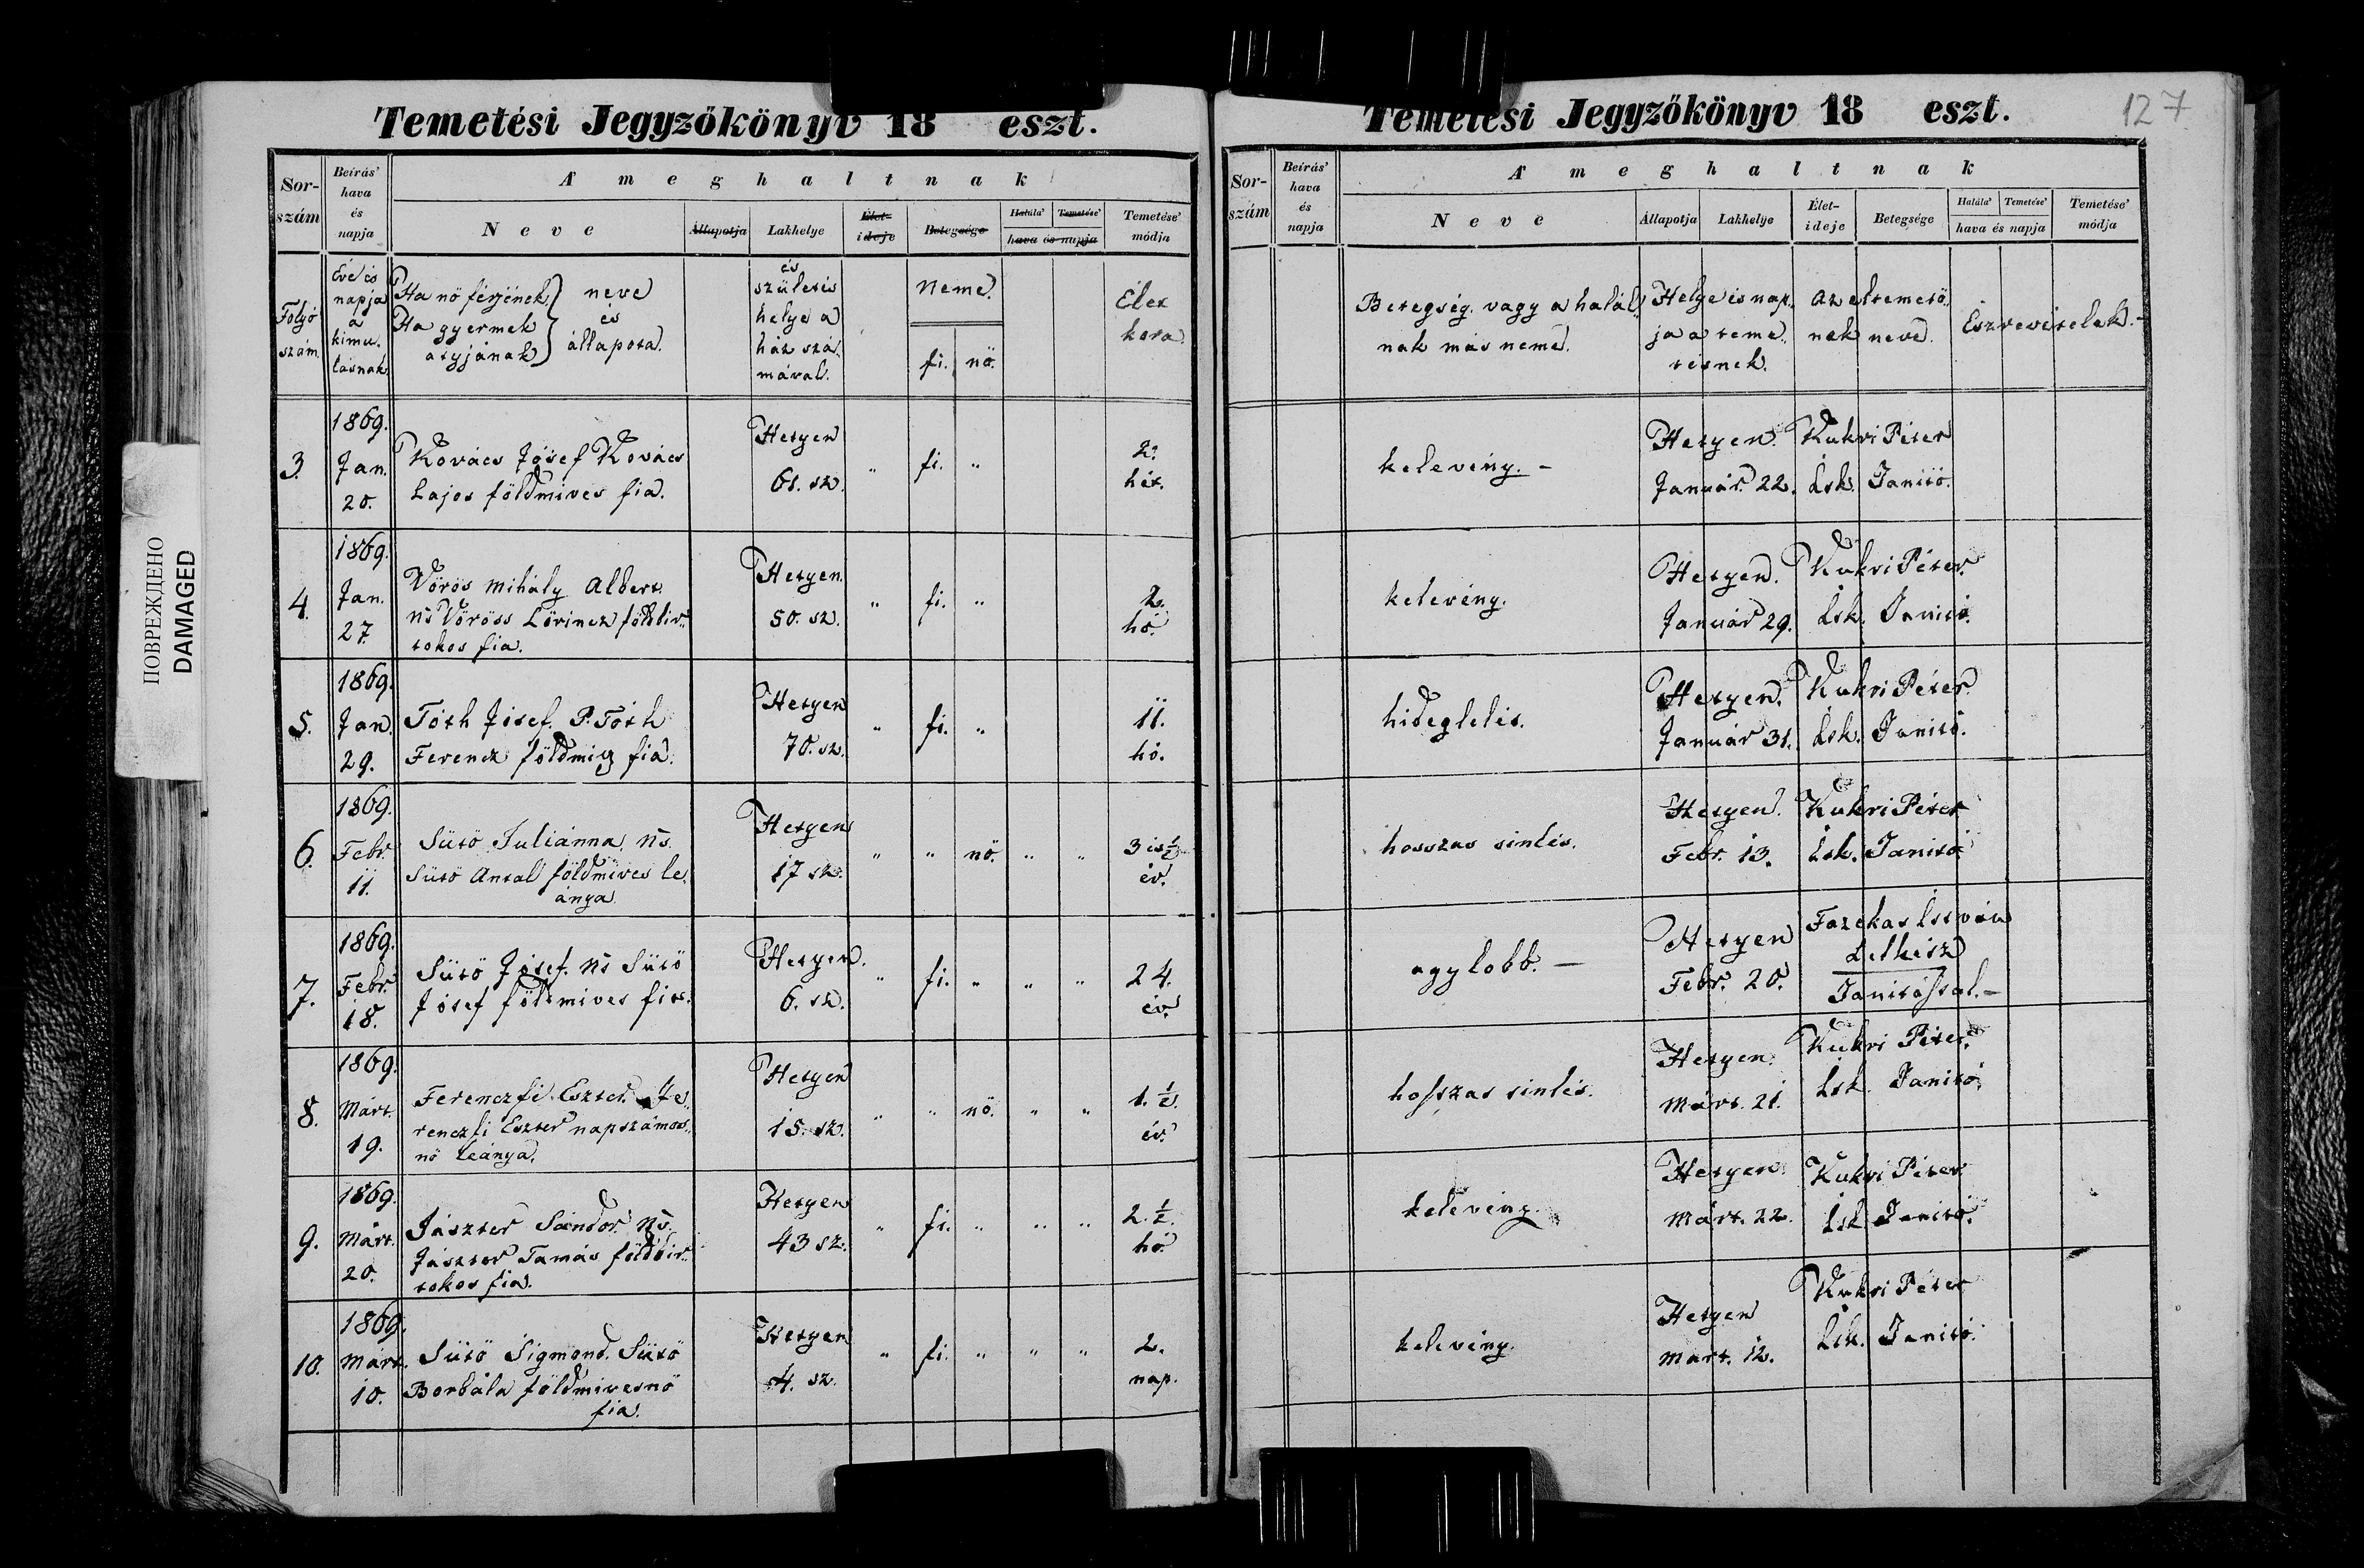 Temetési Jegyzőkönyv 18 eszt.
Sor-
szám
Beírás'
hava
és
napja
A' meghaltnak
Neve
Állapotja
Lakhelye
Élet-
ideje
Betegsége
Halála' Temetése'
hava és napja
Temetése'
módja
Folyó
szám.
Éve és
napja
a
kimu-
lásnak.
Ha nö férjének
Ha gyermek
atyjának
neve
és
állapota.
és
születés
helye a
ház szá-
mával.
Neme.
fi. nö.
Élet
kora
3.
1869.
Jan.
20.
Kovács Jósef Kovács
Lajos földmives fia.
Hetyen
61. sz.
" fi. "
2.
hét.
4.
1869.
Jan.
27.
Vörös Mihály Albert
ns Vöröss Lörincz földbir-
tokos fia.
Hetyen.
50. sz.
" fi. "
2.
hó.
5.
1869.
Jan.
29.
Tóth Jósef. P. Tóth
Ferencz földmiv fia.
Hetyen
70. sz.
" fi. "
11.
hó.
6.
1869.
Febr.
11.
Sütö Juliánna. ns.
Sütö Antal földmives le-
ánya.
Hetyen
17 sz.
" " nö. " "
3 és ½
év.
7.
1869.
Febr.
18.
Sütö Jósef. ns Sütö
Jósef földmives fia.
Hetyen.
6. sz.
" fi. " " "
24.
év.
8.
1869.
Márt.
19.
Ferenczfi Eszter. Fe-
renczfi Eszter napszámos-
nö leánya.
Hetyen
15. sz.
" " nö. " "
1. ½.
év.
9.
1869.
Márt.
20.
Jászter Sándor. ns.
Jászter Tamás földbir-
tokos fia.
Hetyen
43 sz.
" fi. " " "
2. ½.
hó.
10.
1869.
Márt.
10.
Sütö Sigmond. Sütö
Borbála földmivesnö
fia.
Hetyen
4. sz.
" fi. " " "
2.
nap.
Temetési Jegyzőkönyv 18 eszt.
127
Sor-
szám
Beírás'
hava
és
napja
A' meghaltnak
Neve
Állapotja
Lakhelye
Élet-
ideje
Betegsége
Halála' Temetése'
hava és napja
Temetése'
módja
Betegség vagy a halál-
nak más neme.
Helye és nap-
ja a teme-
tésnek.
Az eltemetö-
nek neve.
Észrevételek.
kelevény. -
Hetyen.
Január. 22.
Kukri Péter
Lsk. Tanitó.
kelevény.
Hetyen.
Január 29.
Kukri Péter.
Lsk. Tanitó.
hideglelés.
Hetyen.
Január 31.
Kukri Péter.
Lsk. Tanitó.
hosszas sinlés.
Hetyen.
Febr. 13.
Kukri Péter
Lsk. Tanitó
agylobb. -
Hetyen
Febr. 20.
Fazekas István
Lelkész
Tanitóssal. -
hosszas sinlés.
Hetyen.
Márt. 21.
Kukri Péter.
Lsk. Tanitó.
kelevény.
Hetyen.
Márt. 22.
Kukri Péter
Lsk Tanitó.
kelevény.
Hetyen
Mart. 12.
Kukri Péter
Lsk. Tanitó.
ПОВРЕЖДЕНО
DAMAGED